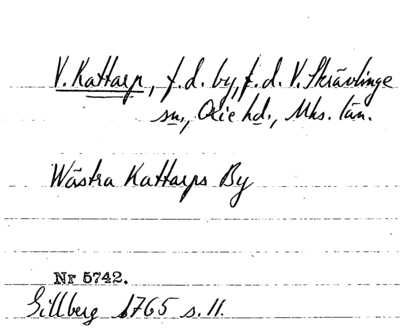 V. Kattarp, f.d. by, f.d. V. Skrävlinge
sn., Oxie hd., Mhs. län.
Wästra Kattarps By
Nr 5742.
Gillberg 1765 s. 11.